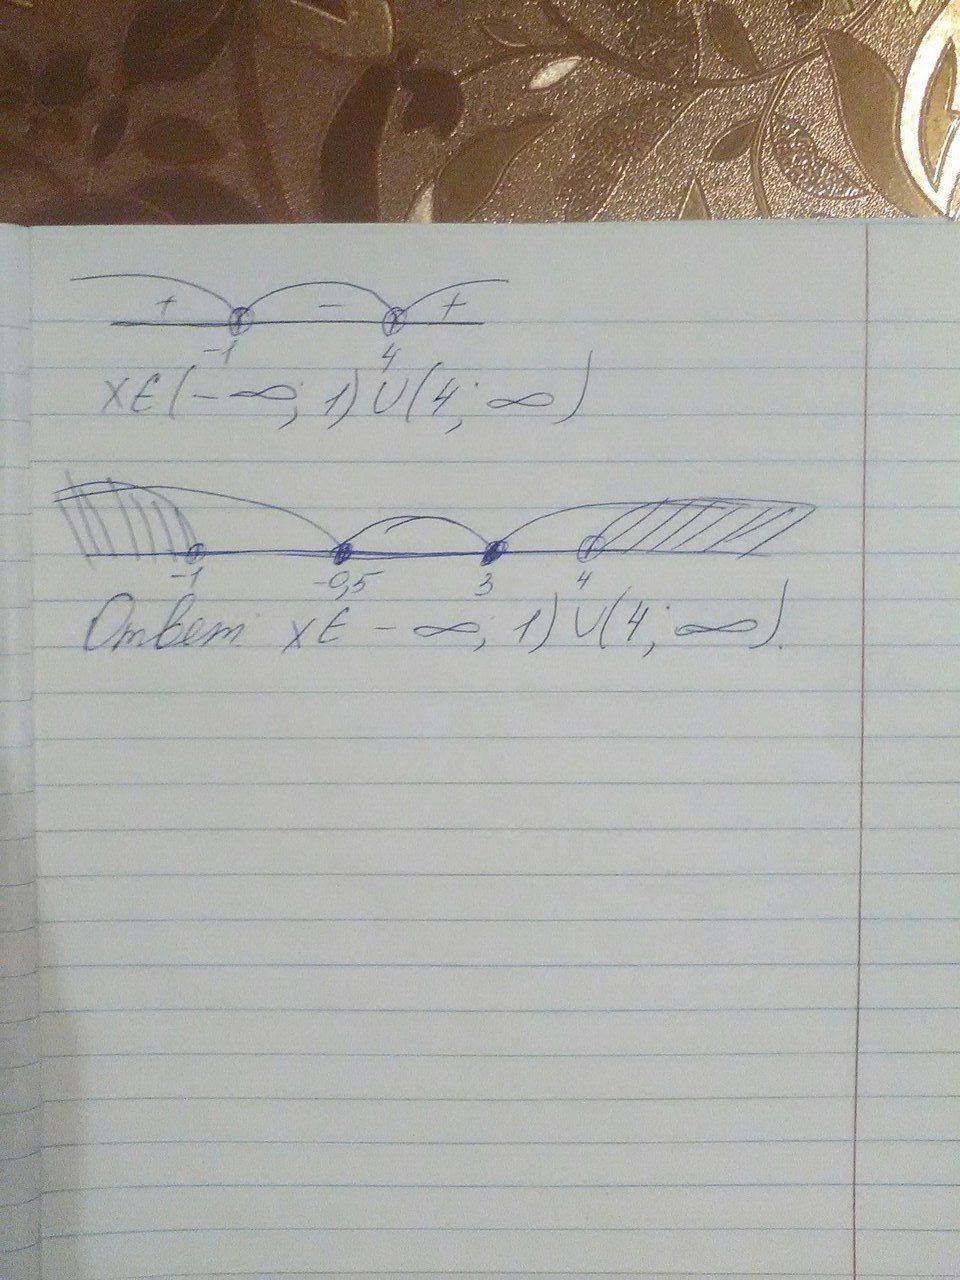 + - +
-1 4
xϵ(-∞; 1)∪(4; ∞)
-1 -0,5 3 4
Ответ: xϵ -∞; 1)∪(4; ∞).